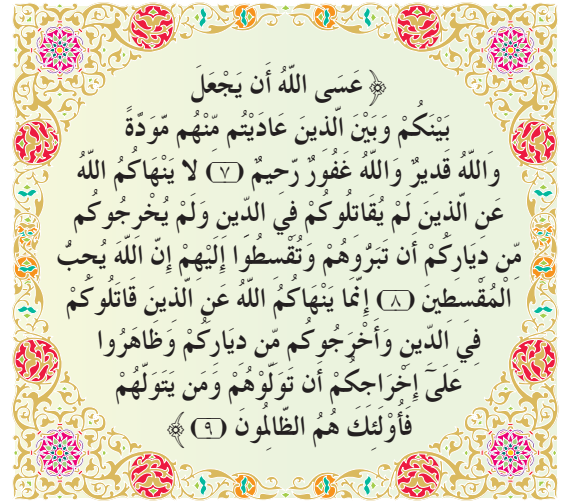 ﴿ عَسَى اللَّهُ أَن يَجْعَلَ
بَيْنَكُمْ وَبَيْنَ الَّذِينَ عَادَيْتُم مِّنْهُم مَّوَدَّةً
وَاللَّهُ قَدِيرٌ وَاللَّهُ غَفُورٌ رَّحِيمٌ (٧) لا يَنْهَاكُمُ اللَّهُ
عَنِ الَّذِينَ لَمْ يُقَاتِلُوكُمْ فِي الدِّينِ وَلَمْ يُخْرِجُوكُم
مِّن دِيَارِكُمْ أَن تَبَرُّوهُمْ وَتُقْسِطُوا إِلَيْهِمْ إِنَّ اللَّهَ يُحِبُّ
الْمُقْسِطِينَ (٨) إِنَّمَا يَنْهَاكُمُ اللَّهُ عَنِ الَّذِينَ قَاتَلُوكُمْ
فِي الدِّينِ وَأَخْرَجُوكُم مِّن دِيَارِكُمْ وَظَاهَرُوا
عَلَىٰٓ إِخْرَاجِكُمْ أَن تَوَلَّوْهُمْ وَمَن يَتَوَلَّهُمْ
فَأُوْلَئِكَ هُمُ الظَّالِمُونَ (٩) ﴾